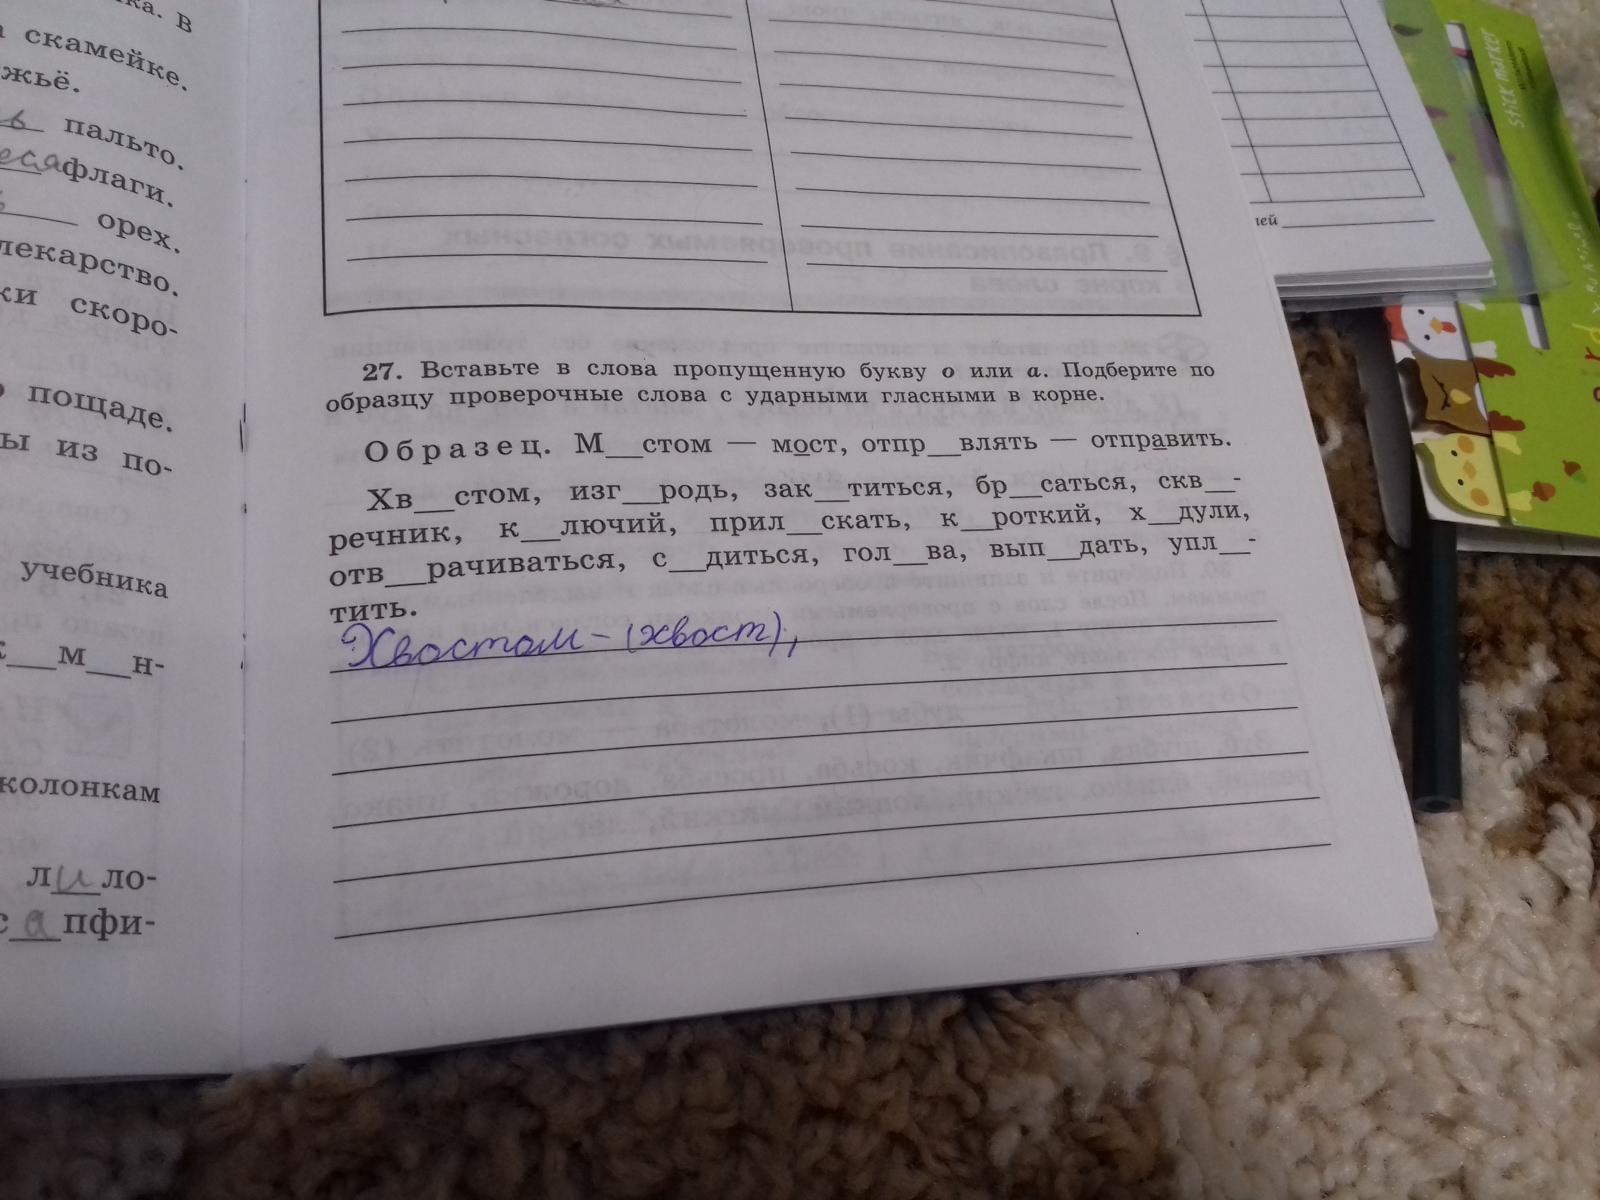 В
скамейке.
жьё.
ь пальто.
есяфлаги.
орех.
лекарство.
ки скоро-
пощаде.
ы из по-
учебника
м__н-
колонкам
лило-
сапфи-
27. Вставьте в слова пропущенную букву о или а. Подберите по
образцу проверочные слова с ударными гласными в корне.
Образец. М__стом — мост, отпр__влять — отправить.
Хв__стом, изг__родь, зак__титься, бр__саться, скв__-
речник, к__лючий, прил__скать, к__роткий, х__дули,
отв__рачиваться, с__диться, гол__ва, вып__дать, упл__-
тить.
Хвостом – (хвост),
лей
stick marker